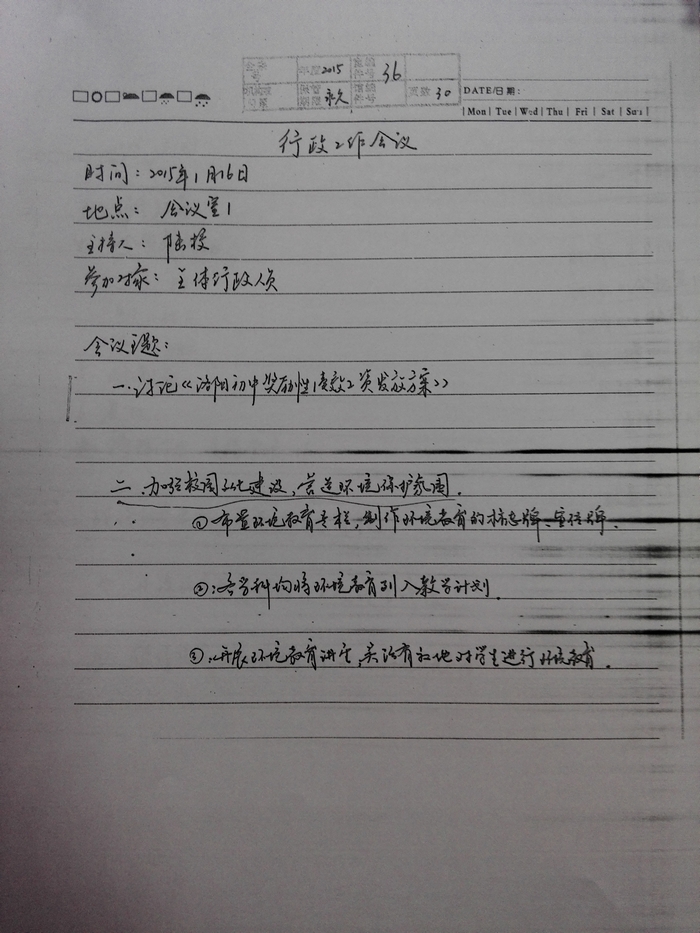 2015 36
永久 页数 30
DATE/日期:
Mon Tue Wed Thu Fri Sat Sun
行政工作会议
时间:2015年1月16日
地点:会议室1
主持人:陆校
参加对象:全体行政人员
会议主题:
一.讨论《洛阳初中奖励性绩效工资发放方案》
二.加强校园文化建设,营造环境保护氛围.
①布置环境教育专栏,制作环境教育的标志牌、宣传牌.
②:各学科均将环境教育列入教学计划.
③:开展环境教育讲座,灵活有效地对学生进行环境教育.